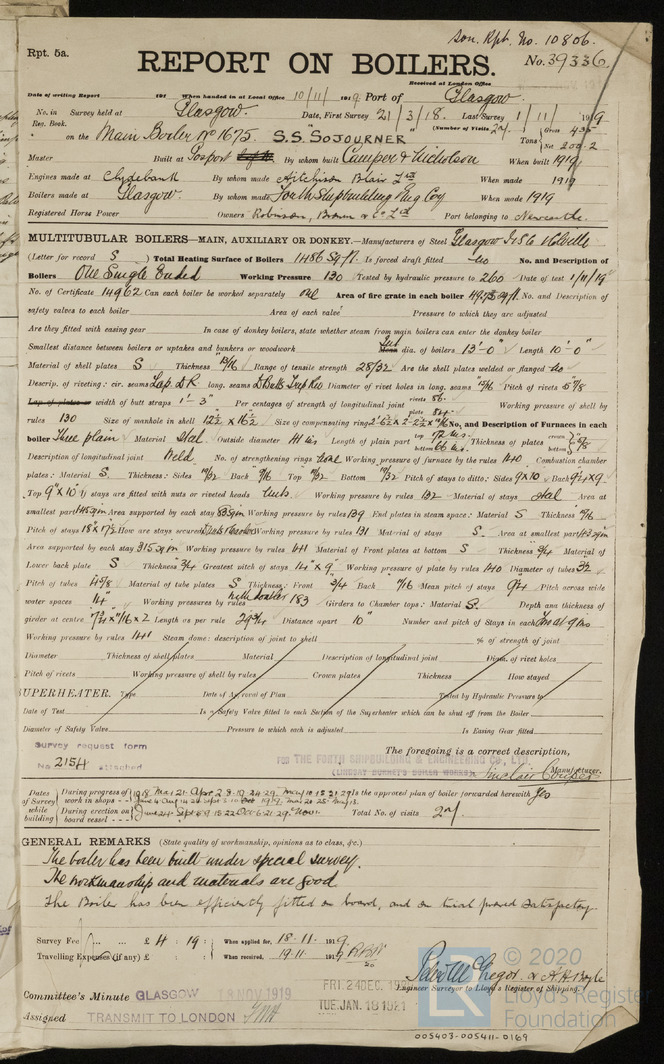 Son. Rpt. No. 10806.
Rpt. 5a.
REPORT ON BOILERS.
No. 39336
Received at London Office
Date of writing Report 191 When handed in at Local Office 10/11/1919 Port of Glasgow.
No. in Survey held at Glasgow. Date, First Survey 21/3/18. Last Survey 1/11/1919
Reg. Book. (Number of Visits 24)
on the Main Boiler No 1675 S.S. "SOJOURNER" Tons Gross 435 Net 200.2
Master Built at Gosport By whom built Camper & Nicholson When built 1919
Engines made at Clydebank By whom made Aitchison Blair Ltd When made 1919
Boilers made at Glasgow. By whom made Forth Shipbuilding Eng Coy When made 1919
Registered Horse Power Owners Robinson, Brown & Co Ltd Port belonging to Newcastle.
MULTITUBULAR BOILERS—MAIN, AUXILIARY OR DONKEY.—Manufacturers of Steel Glasgow I & S Co
(Letter for record S) Total Heating Surface of Boilers 1486 sq ft. Is forced draft fitted no No. and Description of
Boilers One Single Ended Working Pressure 130 Tested by hydraulic pressure to 260 Date of test 1/11/19
No. of Certificate 14962 Can each boiler be worked separately one Area of fire grate in each boiler 49.75 sq ft. No. and Description of
safety valves to each boiler Area of each valve Pressure to which they are adjusted
Are they fitted with easing gear In case of donkey boilers, state whether steam from main boilers can enter the donkey boiler
Smallest distance between boilers or uptakes and bunkers or woodwork Mean dia. of boilers 13'-0" Length 10'-0"
Material of shell plates S Thickness 13/16 Range of tensile strength 28/32 Are the shell plates welded or flanged no
Descrip. of riveting: cir. seams Lap D.R. long. seams D Butts Trip Riv Diameter of rivet holes in long. seams 15/16 Pitch of rivets 5 7/8
Lap of plates or width of butt straps 1'-3" Per centages of strength of longitudinal joint rivets 86. plate 84. Working pressure of shell by
rules 130 Size of manhole in shell 12½ x 16½ Size of compensating ring No. and Description of Furnaces in each
boiler Three plain Material Steel Outside diameter 41 ins Length of plain part top 72 ins. bottom 66 ins. Thickness of plates crown bottom 5/8
Description of longitudinal joint Weld No. of strengthening rings none Working pressure of furnace by the rules 140 Combustion chamber
plates: Material S. Thickness: Sides 19/32 Back 9/16 Top 19/32 Bottom 19/32 Pitch of stays to ditto: Sides 9x10 Back 9¼x9
Top 9"x10" If stays are fitted with nuts or riveted heads nuts. Working pressure by rules 132 Material of stays steel Area at
smallest part Area supported by each stay Working pressure by rules 139 End plates in steam space: Material S Thickness
Pitch of stays 18"x17½ How are stays secured Working pressure by rules 131 Material of stays S. Area at smallest part
Area supported by each stay 315 sq in Working pressure by rules 141 Material of Front plates at bottom S Thickness 3/4 Material of
Lower back plate S Thickness 3/4 Greatest pitch of stays 14"x9" Working pressure of plate by rules 140 Diameter of tubes 3½
Pitch of tubes 4 5/8 Material of tube plates S Thickness: Front 3/4 Back 11/16 Mean pitch of stays 9¼ Pitch across wide
water spaces 14" Working pressures by rules with doubler 183 Girders to Chamber tops: Material S. Depth and thickness of
girder at centre 7¾ x 11/16 x 2 Length as per rule 29¾ Distance apart 10" Number and pitch of Stays in each
Working pressure by rules 141 Steam dome: description of joint to shell % of strength of joint
Diameter Thickness of shell plates Material Description of longitudinal joint Diam. of rivet holes
Pitch of rivets Working pressure of shell by rules Crown plates Thickness How stayed
SUPERHEATER. Type Date of Approval of Plan Tested by Hydraulic Pressure to
Date of Test Is a Safety Valve fitted to each Section of the Superheater which can be shut off from the Boiler
Diameter of Safety Valve Pressure to which each is adjusted Is Easing Gear fitted
Survey request form
No. 2154 attached
The foregoing is a correct description,
FOR THE FORTH SHIPBUILDING & ENGINEERING CO, LTD.
(LINDSAY BURNET'S BOILER WORKS)
Sinclair Couper Manufacturer.
Dates of Survey while building During progress of work in shops - - Is the approved plan of boiler forwarded herewith Yes
During erection on board vessel - - - Total No. of visits 24
GENERAL REMARKS (State quality of workmanship, opinions as to class, &c.)
The boiler has been built under special survey.
The workmanship and materials are good
The Boiler has been efficiently fitted on board, and on trial proved satisfactory.
Survey Fee £ 4 : 19 : When applied for, 18.11.1919.
Travelling Expenses (if any) £ : : When received, 19.11.1919
Peter McGregor & A.H. Boyle
Engineer Surveyor to Lloyd's Register of Shipping.
Committee's Minute GLASGOW 18 NOV 1919
FRI. 24 DEC. 1920
TUE. JAN. 18 1921
Assigned TRANSMIT TO LONDON
© 2020
Lloyd's Register
Foundation
LR
005403-005411-0169